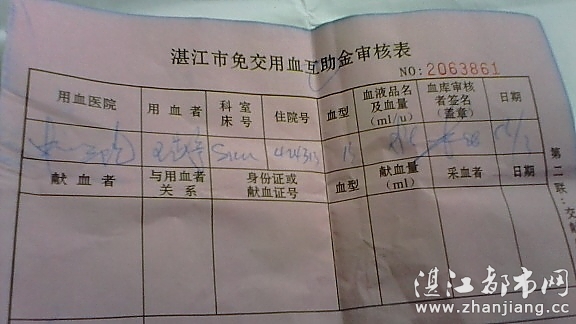 湛江市免交用血互助金审核表
NO:2063861
用血医院 用血者 科室床号 住院号 血型 血液品名及血量(ml/u) 血库审核者签名(盖章) 日期
献血者 与用血者关系 身份证或献血证号 血型 献血量(ml) 采血者 日期
第二联:交献
湛江都市网
www.zhanjiang.cc